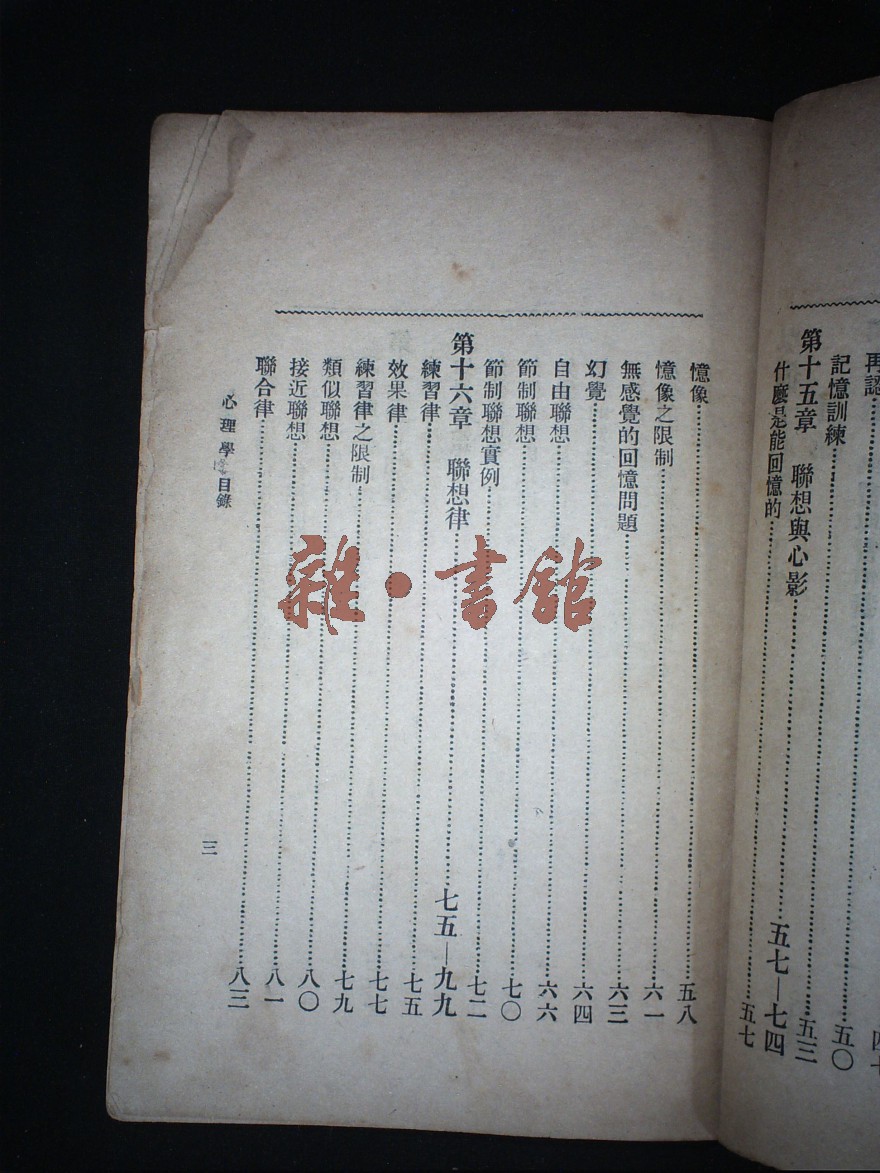 再認……五〇
記憶訓練……五三
第十五章 聯想與心影……五七—七四
什麼是能回憶的……五七
憶像……五八
憶像之限制……六一
無感覺的回憶問題……六三
幻覺……六四
自由聯想……六六
節制聯想……七〇
節制聯想實例……七二
第十六章 聯想律……七五—九九
練習律……七五
效果律……七七
練習律之限制……七九
類似聯想……八〇
接近聯想……八一
聯合律……八三
心理學 目錄
三
雜·書館